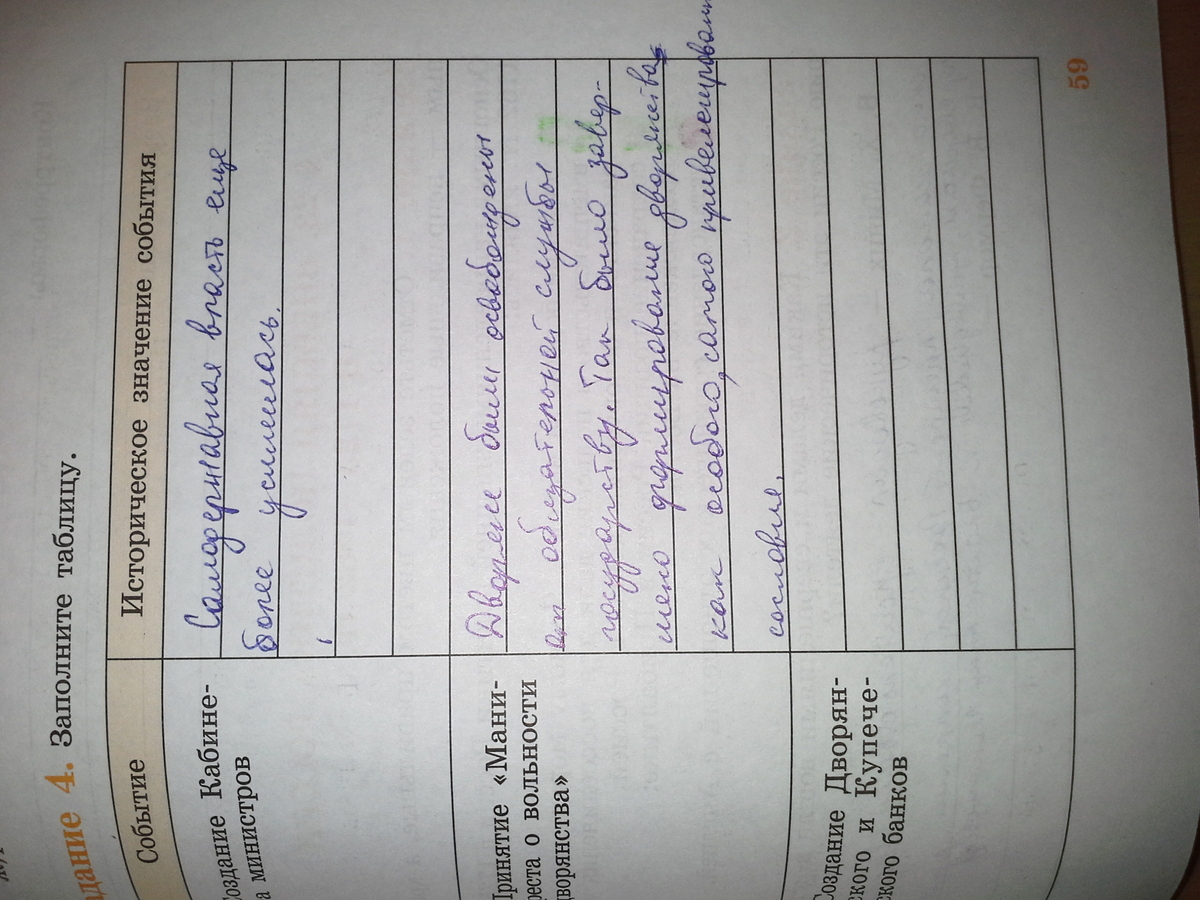 Задание 4. Заполните таблицу.
Событие
Историческое значение события
Создание Кабине-
та министров
Самодержавная власть еще
более усилилась.
Принятие «Мани-
феста о вольности
дворянства»
Дворяне были освобождены
от обязательной службы
государству. Так было завер-
шено формирование дворянства
как особого, самого привелегирован
сословия.
Создание Дворян-
ского и Купече-
ского банков
59